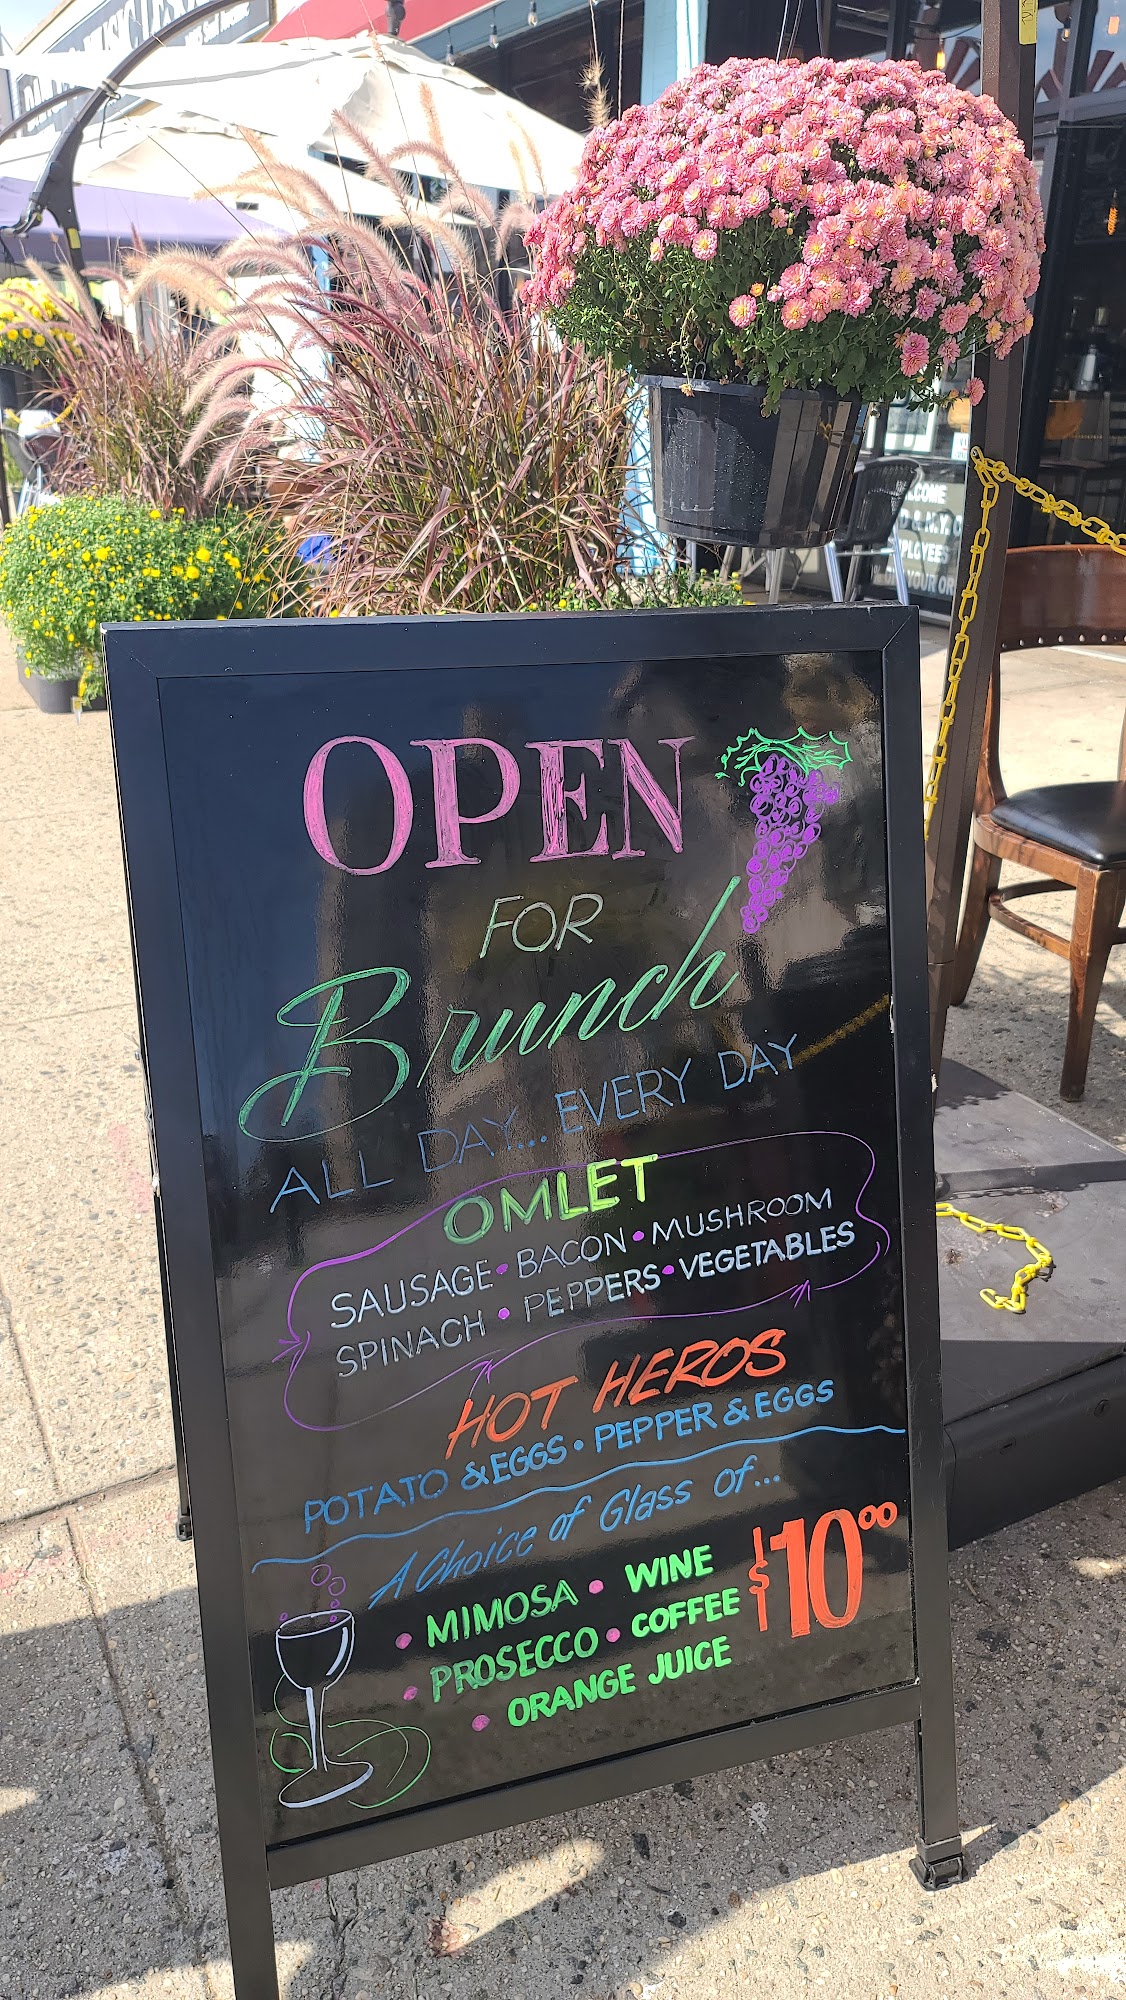 OPEN
FOR
Brunch
ALL DAY... EVERY DAY
OMLET
SAUSAGE • BACON • MUSHROOM
SPINACH • PEPPERS • VEGETABLES
HOT HEROS
POTATO & EGGS • PEPPER & EGGS
A Choice of Glass of...
• MIMOSA • WINE
• PROSECCO • COFFEE
• ORANGE JUICE
$10⁰⁰